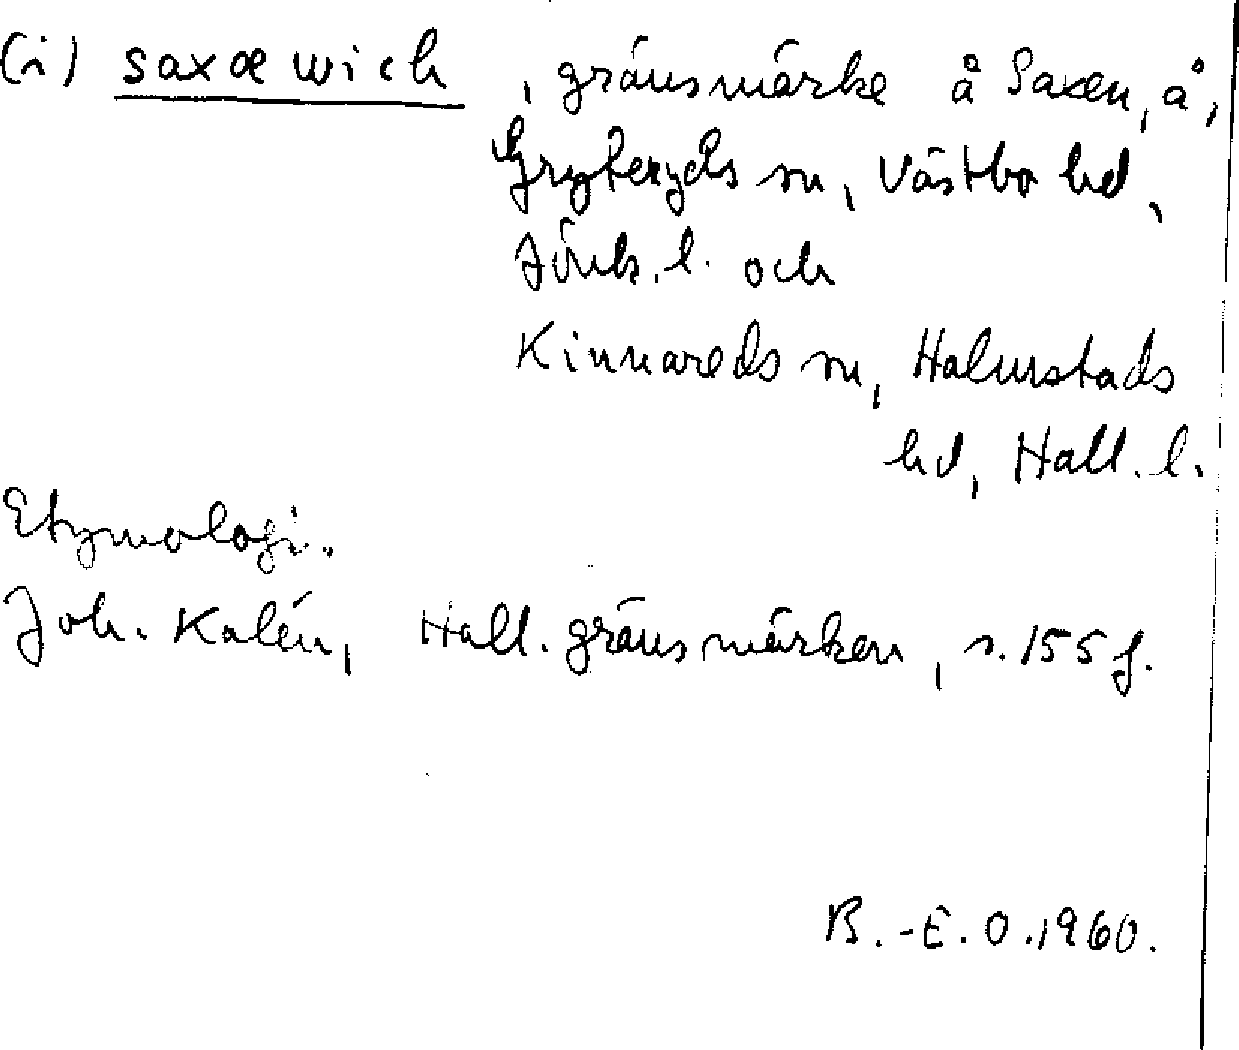 (i) saxæwich, gränsmärke å Saxen, å,
Gryteryds sn, Västbo hd,
Jönk. l. och
Kinnareds sn, Halmstads
hd, Hall. l.
Etymologi.
Joh. Kalén, Hall. gränsmärken, s. 155 f.
B.-E. O. 1960.